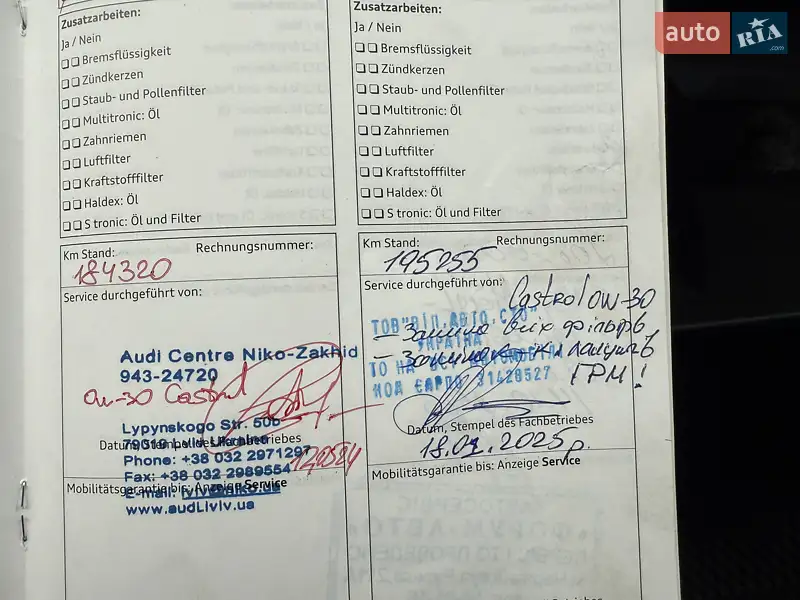 auto RIA .com
Zusatzarbeiten:
Ja / Nein
Bremsflüssigkeit
Zündkerzen
Staub- und Pollenfilter
Multitronic: Öl
Zahnriemen
Luftfilter
Kraftstofffilter
Haldex: Öl
S tronic: Öl und Filter
Km Stand:
Rechnungsnummer:
184320
Service durchgeführt von:
Audi Centre Niko-Zakhid
943-24720
0w-30 Castrol
Lypynskogo Str. 50b
79019 Lviv Ukraine
Datum, Stempel des Fachbetriebes
Phone: +38 032 2971297
Fax: +38 032 2989554
Mobilitätsgarantie bis: Anzeige Service
E-mail: lviv@niko.ua
www.audi.lviv.ua
Zusatzarbeiten:
Ja / Nein
Bremsflüssigkeit
Zündkerzen
Staub- und Pollenfilter
Multitronic: Öl
Zahnriemen
Luftfilter
Kraftstofffilter
Haldex: Öl
S tronic: Öl und Filter
Km Stand:
Rechnungsnummer:
195255
Service durchgeführt von:
Castrol 0W-30
ТОВ "ВІП.АВТО.СТО"
- Заміна всіх фільтрів
УКРАЇНА
- Заміна ланцюгів
ГРМ!
КОД ЄДРПО 31428527
Datum, Stempel des Fachbetriebes
18.01.2025р.
Mobilitätsgarantie bis: Anzeige Service